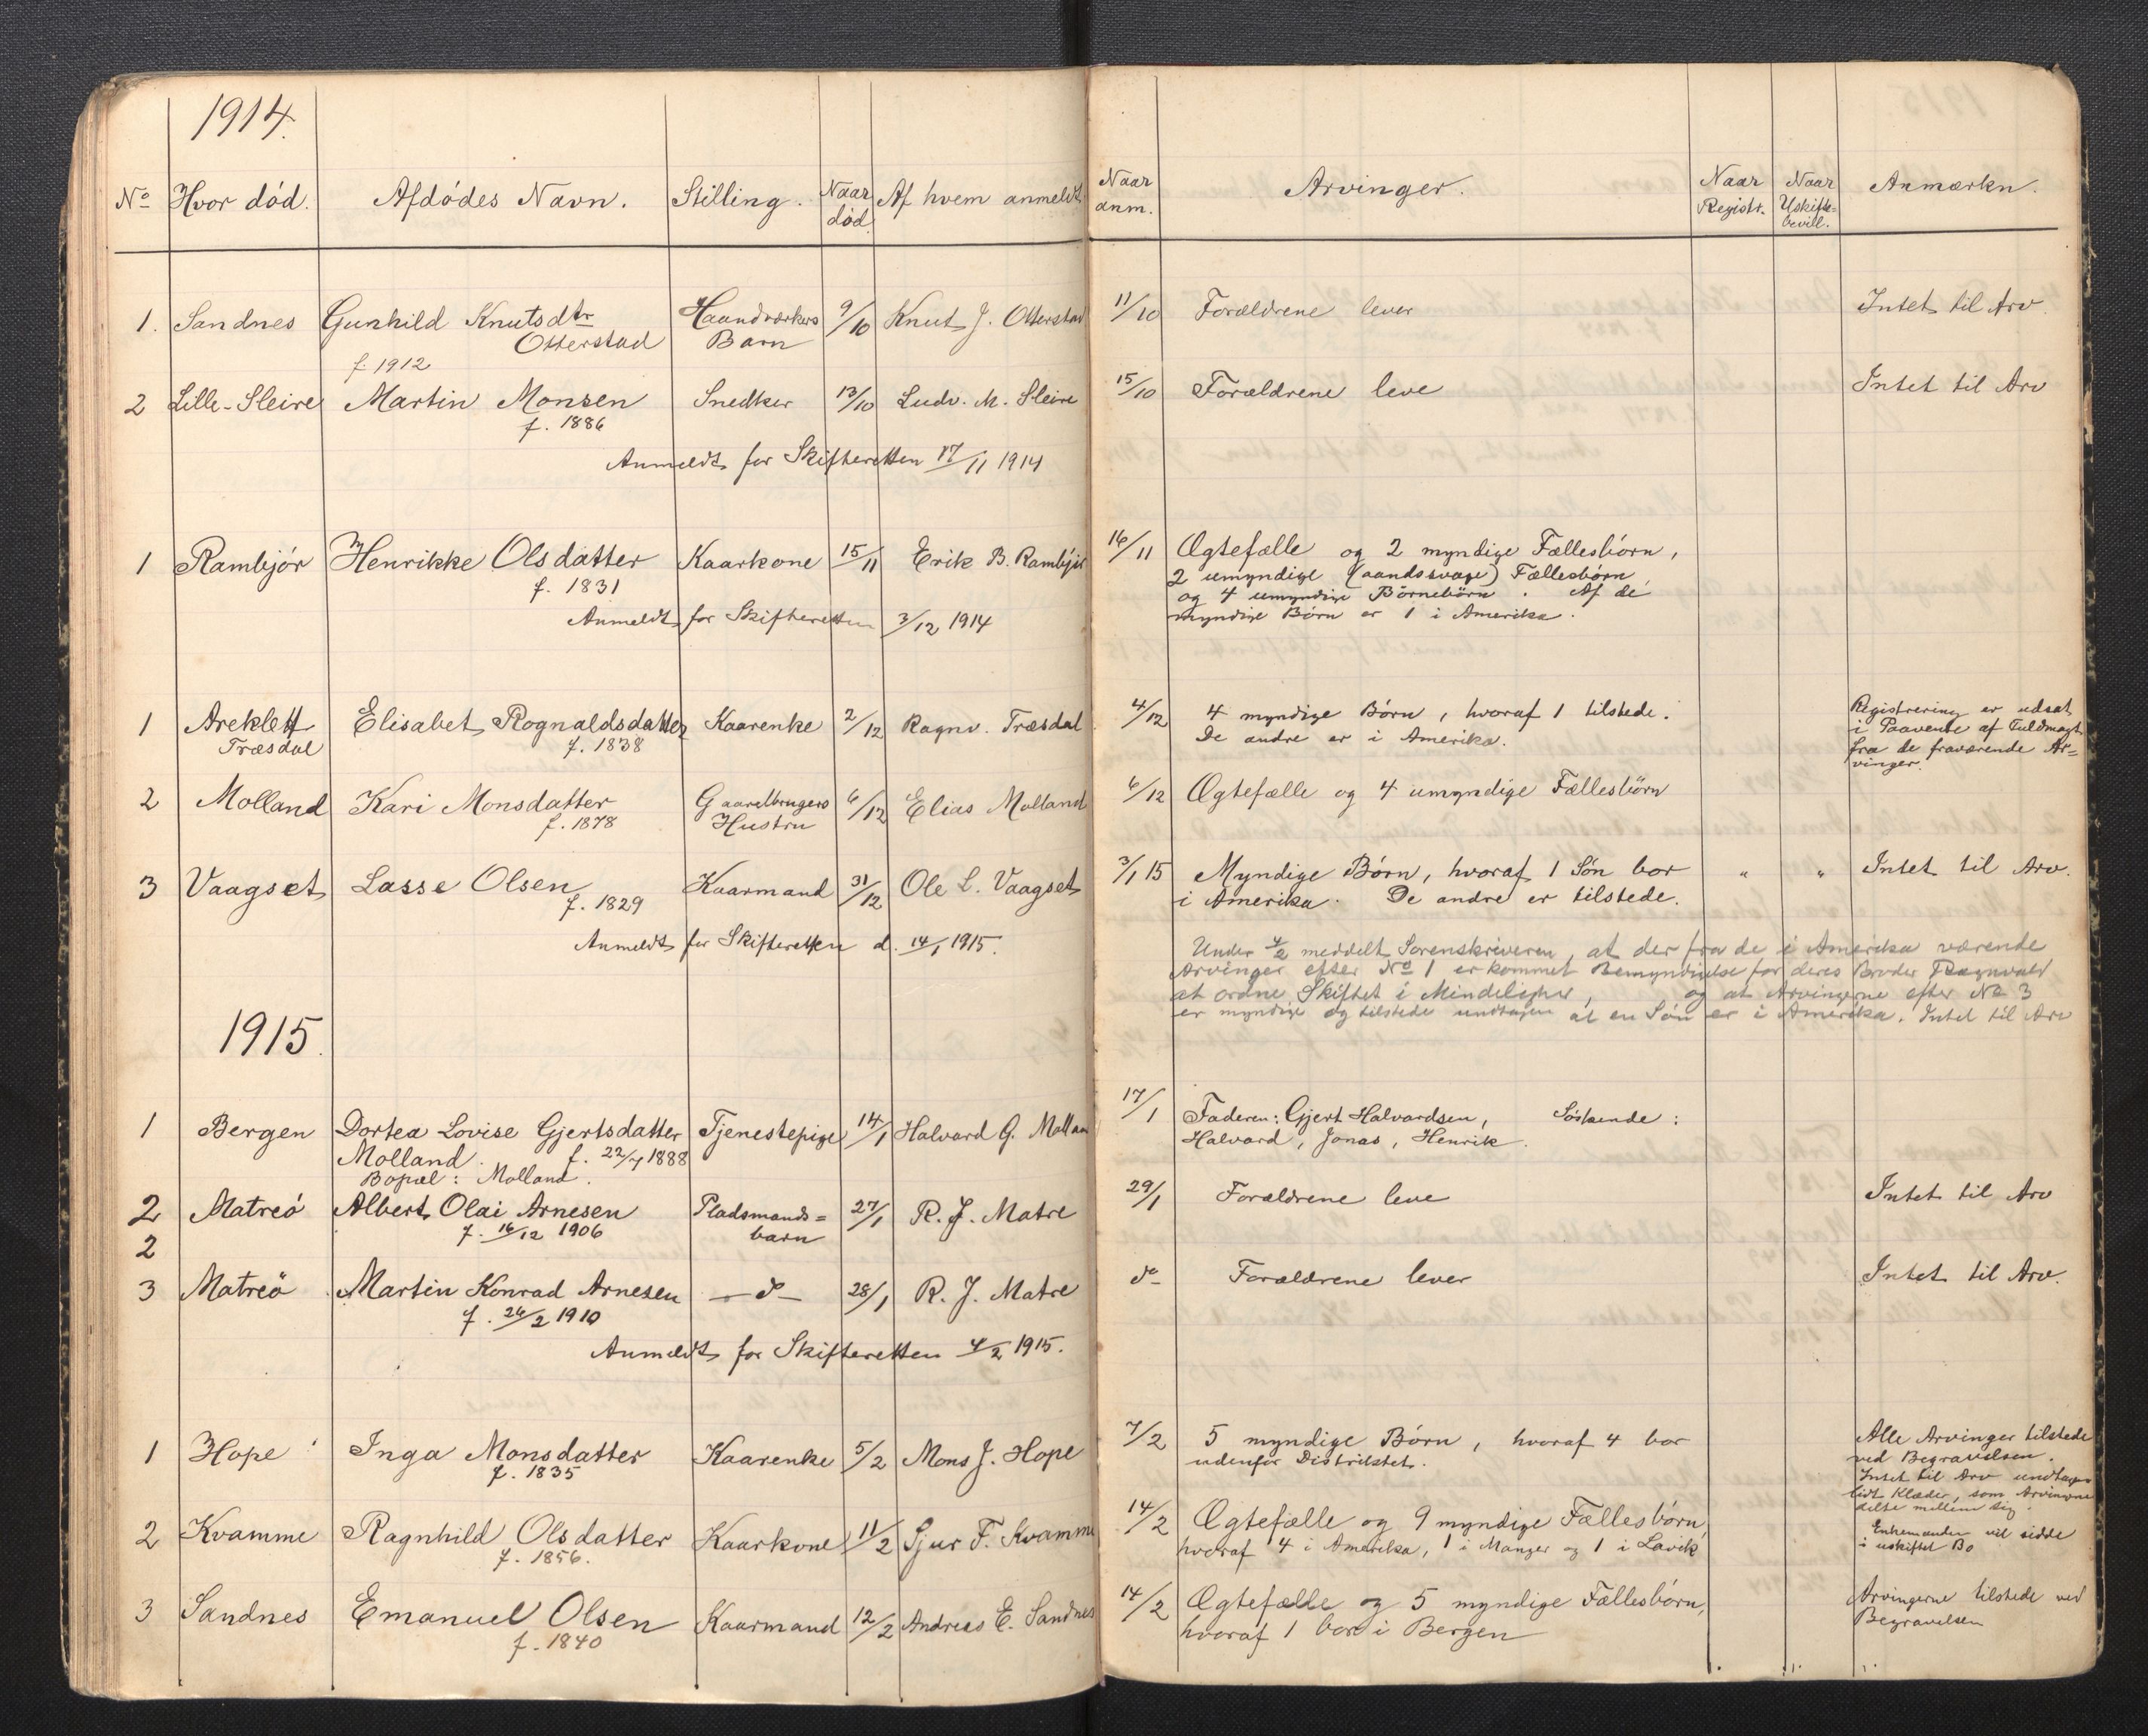 1914.
No Hvor död. Afdödes Navn. Stilling. Naar död. Af hvem anmeldt
1. Sandnes Gunhild Knutsdtr Haandværkers 9/10 Knut J. Otterstad
Otterstad Barn
f. 1912
2 Lille-Sleire Martin Monsen Snedker 13/10 Ludv. M. Sleire
f. 1886
Anmeldt for Skifteretten 17/11 1914
1 Rambjör Henrikke Olsdatter Kaarkone 15/11 Erik B. Rambjör
f. 1831
Anmeldt for Skifteretten 3/12 1914
1 Areklett Elisabet Rognaldsdatter Kaarenke 2/12 Ragnv. Træsdal
Træsdal f. 1838
2 Molland Kari Monsdatter Gaardbrugers 6/12 Elias Molland
f. 1878 Hustru
3 Vaagset Lasse Olsen Kaarmand 31/12 Ole L. Vaagset
f. 1829
Anmeldt for Skifteretten d. 14/1 1915.
1915.
1 Bergen Dortea Lovise Gjertsdatter Tjenestepige 14/1 Halvard G. Mollan
Molland. f. 22/7 1888
Bopæl: Molland.
2 Matreö Albert Olai Arnesen Pladsmands= 27/1 R. J. Matre
f. 16/12 1906 barn
2
3 Matreö Martin Konrad Arnesen — do — 28/1 R. J. Matre
f. 26/2 1910
Anmeldt for Skifteretten 4/2 1915.
1 Hope Inga Monsdatter Kaarenke 5/2 Mons J. Hope
f. 1835
2 Kvamme Ragnhild Olsdatter Kaarkone 11/2 Sjur F. Kvamme
f. 1856.
3 Sandnes Emanuel Olsen Kaarmand 12/2 Andreas E. Sandnes
f. 1840
Naar anm. Arvinger. Naar Registr. Naar Uskifte=bevill. Anmærkn.
11/10 Forældrene lever Intet til Arv.
15/10 Forældrene leve Intet til Arv
16/11 Ægtefælle og 2 myndige Fællesbörn,
2 umyndige (aandssvage) Fællesbörn,
og 4 umyndige Börnebörn. Af de
myndige Börn er 1 i Amerika.
4/12 4 myndige Börn, hvoraf 1 tilstede.
De andre er i Amerika.
Registrering er udsat
i Paavente af Fuldmagt
fra de fraværende Ar=
vinger.
6/12 Ægtefælle og 4 umyndige Fællesbörn
3/1 15 Myndige Börn, hvoraf 1 Sön bor " " Intet til Arv.
i Amerika. De andre er tilstede.
Under 4/2 meddelt Sorenskriveren, at der fra de i Amerika værende
Arvinger efter No 1 er kommet Bemyndigelse for deres Broder Ragnvald
at ordne Skiftet i Mindelighed, og at Arvingerne efter No 3
er myndige og tilstede undtagen at en Sön er i Amerika. Intet til Arv
17/1 Faderen: Gjert Halvardsen, Söskende:
Halvard, Jonas, Henrik.
29/1 Forældrene leve Intet til Arv
do Forældrene lever Intet til Arv.
7/2 5 myndige Börn, hvoraf 4 bor
udenför Distriktet.
Alle Arvinger tilstede
ved Begravelsen.
Intet til Arv undtagen
lidt Klæder, som Arvingerne
delte mellem sig.
14/2 Ægtefælle og 9 myndige Fællesbörn,
hvoraf 4 i Amerika, 1 i Manger og 1 i Lavik
Enkemanden vil sidde
i uskiftet Bo
14/2 Ægtefælle og 5 myndige Fællesbörn,
hvoraf 1 bor i Bergen
Arvingerne tilstede ved
Begravelsen